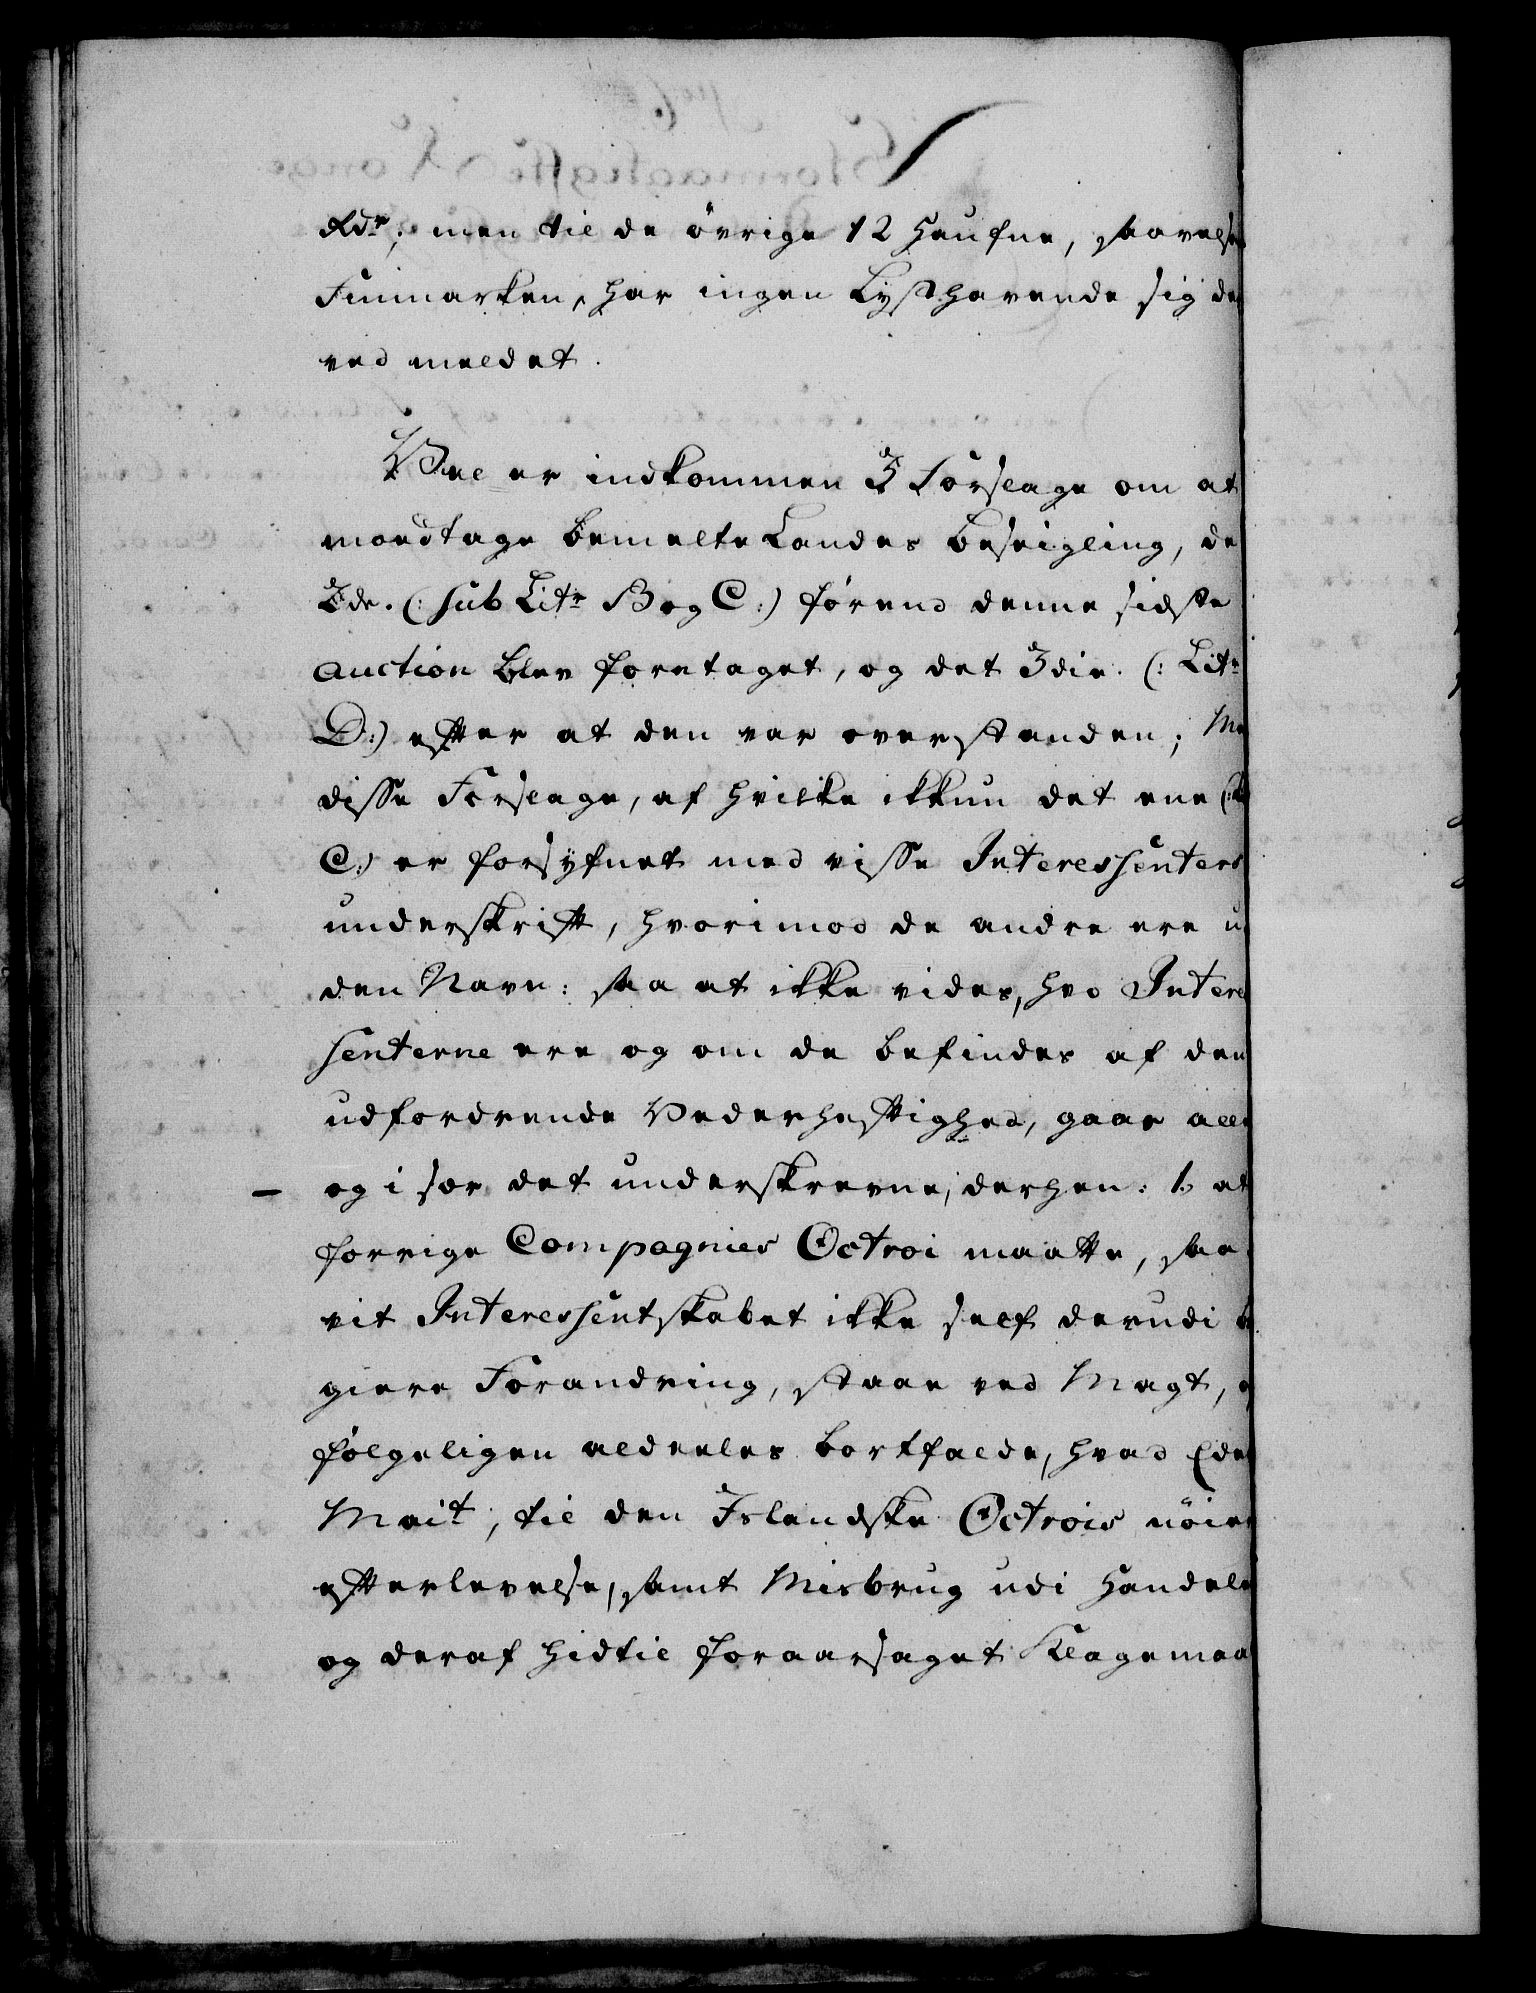 Rdr; men til de øvrige 12 Haufne, saavelsom
Finmarken, har ingen Lysthavende sig der
ved meldet.
Vel er indkommen 3 Forslage om at
modtage bemelte Landes Beseigling, de
2de. (: sub Litr B og C :) førend denne sidste
Auction blev foretaget, og det 3die. (: Litr
D :) efter at den var overstanden; Men
disse Forslage, af hvilke ikkun det ene (:
C :) er forsÿfnet med visse Interessenters
underskrift, hvorimod de andre ere u
den Navn: saa at ikke vides, hvo Interes
senterne ere og om de befindes af den
udfordrende Vederheftighed, gaar alle
og i sær det underskrevne, derhen: 1. at
forrige Compagnies Octroi maatte, saa
vit Interessentskabet ikke self derudi be
giere Forandring, staae ved Magt, og
følgeligen aldeeles bortfalde, hvad Eders
Mait, til den Islandske Octrois nöiere
efterlevelse, samt Misbrug udi Handelen
og deraf hidtil foraarsaget Klagemaal